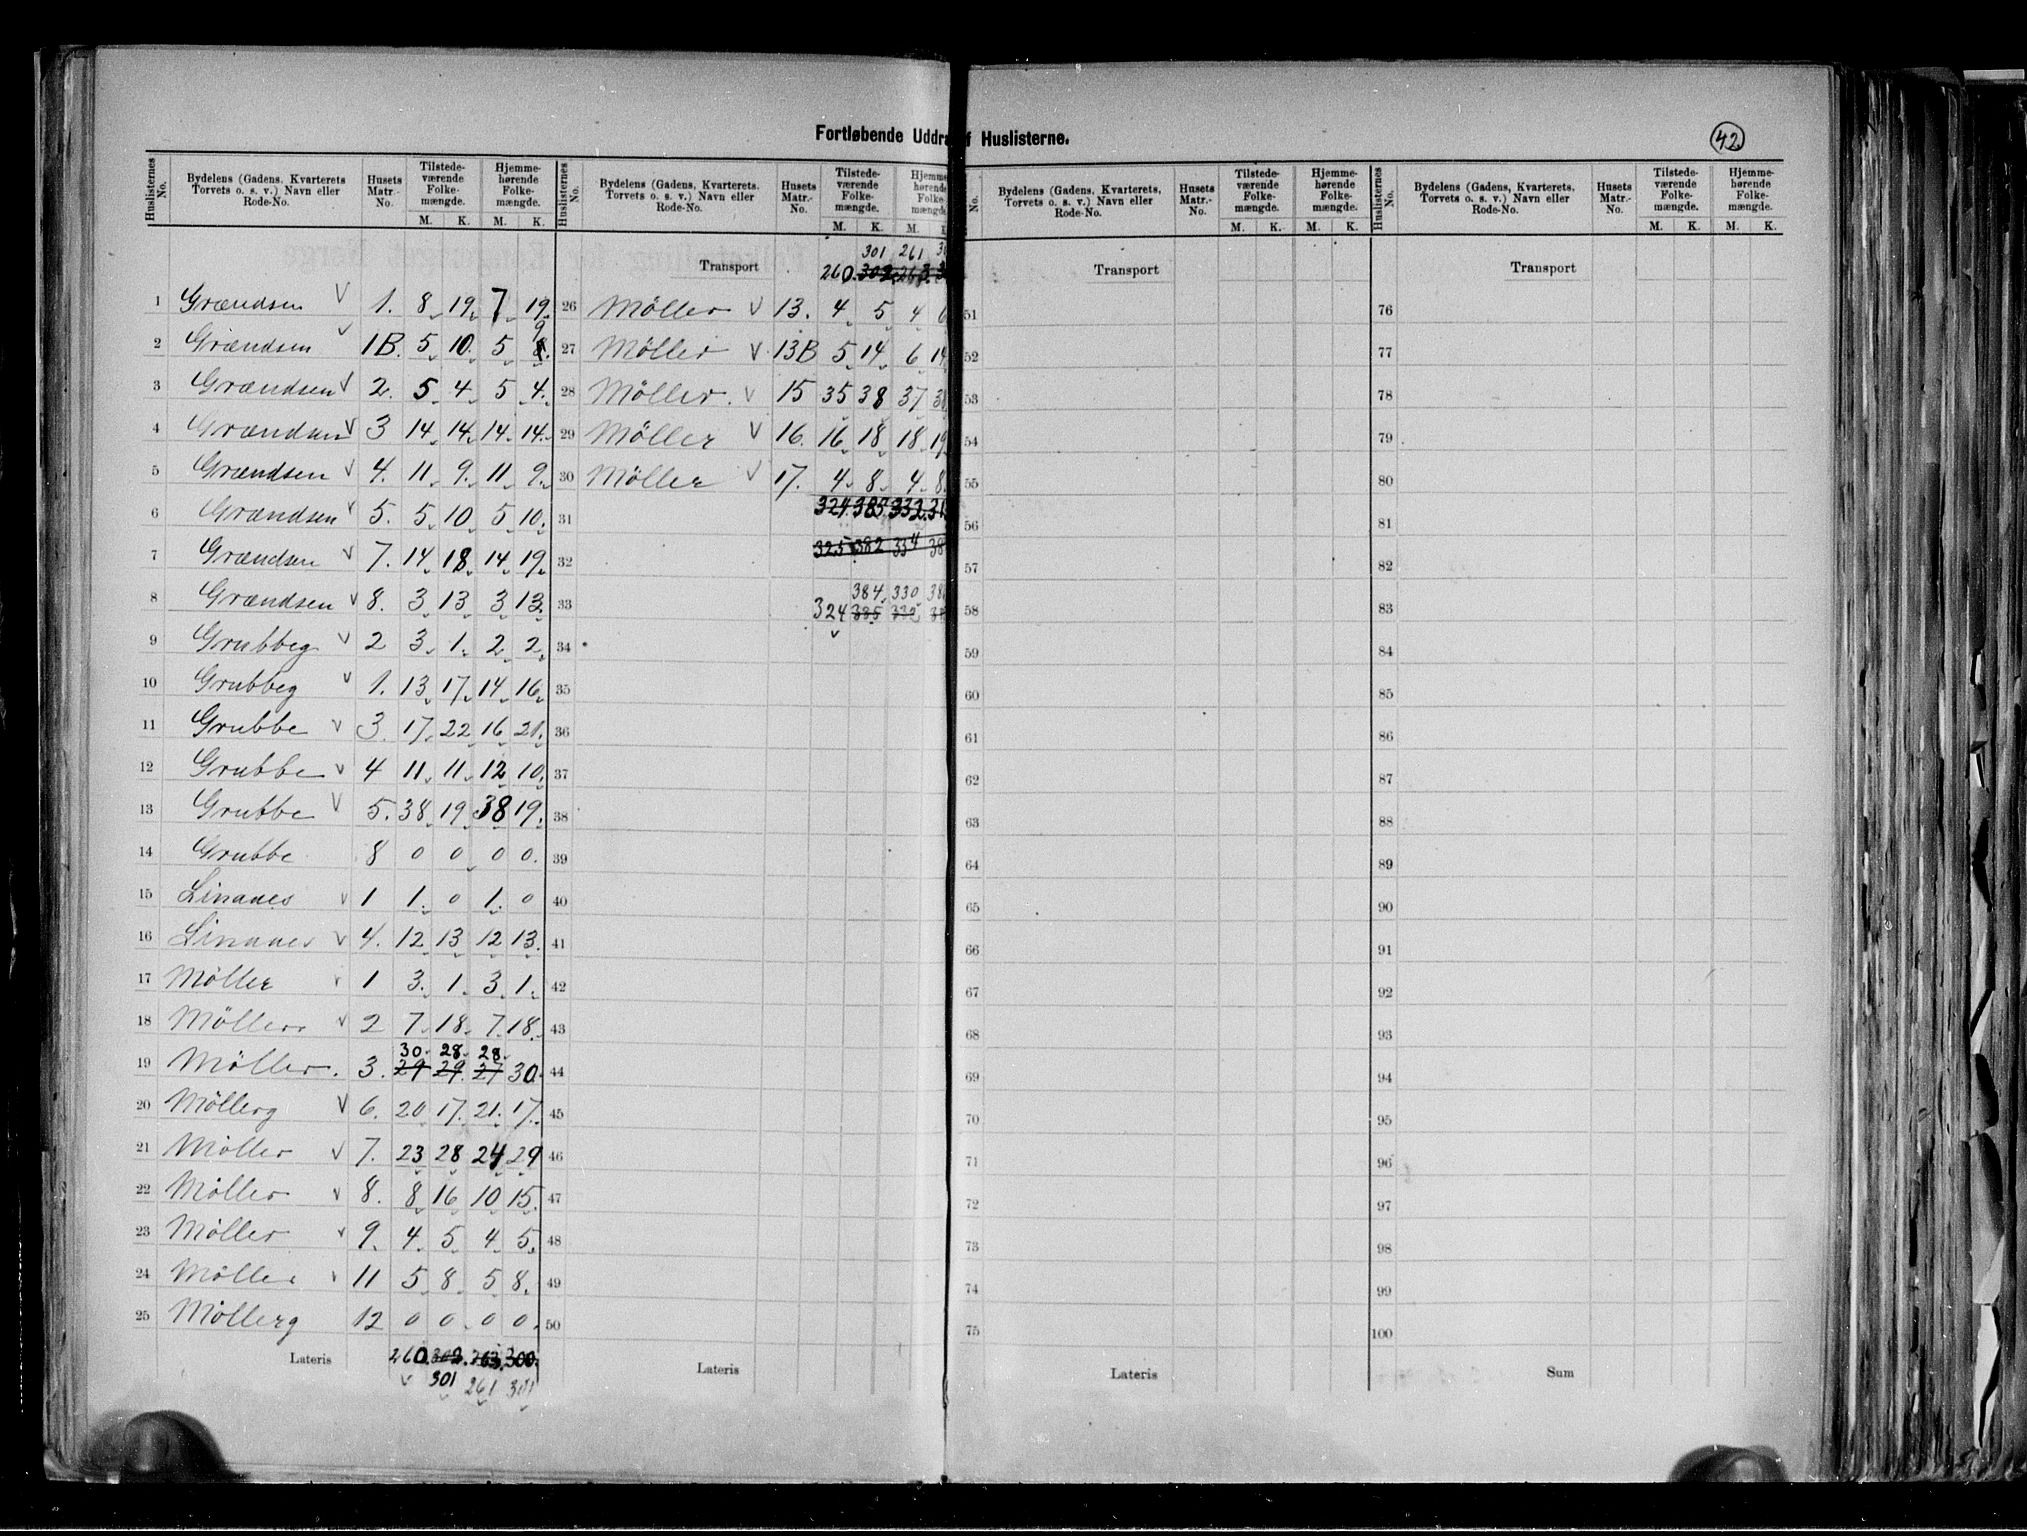 Fortløbende Uddra f Huslisterne.
42
Huslisternes No. | Bydelens (Gadens, Kvarterets Torvets o. s. v.) Navn eller Rode-No. | Husets Matr.-No. | Tilstede-værende Folke-mængde. M. K. | Hjemme-hørende Folke-mængde. M. K.
1 Grændsen V 1. 8 19 7 19
2 Grændsen V 1B. 5 10 5 9
3 Grændsen V 2. 5 4 5 4
4 Grændsen V 3 14 14 14 14
5 Grændsen V 4. 11 9 11 9
6 Grændsen V 5. 5 10 5 10
7 Grændsen V 7. 14 18 14 19
8 Grændsen V 8. 3 13 3 13
9 Grubbeg V 2 3 1 2 2
10 Grubbeg V 1. 13 17 14 16
11 Grubbe V 3 17 22 16 21
12 Grubbe V 4 11 11 12 10
13 Grubbe V 5. 38 19 38 19
14 Grubbe 8 0 0 0 0
15 Linanes V 1 1 0 1 0
16 Linanes V 4. 12 13 12 13
17 Møller V 1 3 1 3 1
18 Møller V 2 7 18 7 18
30 28 28
19 Møller. 3. 29 29 27 30
20 Møllerg V 6. 20 17 21 17
21 Møller V 7. 23 28 24 29
22 Møller V 8. 8 16 10 15
23 Møller V 9. 4 5 4 5
24 Møller V 11 5 8 5 8
25 Møllerg 12 0 0 0 0
Lateris 260 302. 263. 300.
301 261 301
Huslisternes No. | Bydelens (Gadens, Kvarterets. Torvets o. s. v.) Navn eller Rode-No. | Husets Matr.-No. | Tilstede-værende Folke-mængde. M. K. | Hjemme hørende Folke mængde M.
301 261
Transport 260 302 263
26 Møller V 13. 4 5 4
27 Møller V 13B 5 14 6 14
28 Møller. V 15 35 38 37 38
29 Møller V 16. 16 18 18 19
30 Møller V 17. 4 8 4 8
324 385 332
31
325 382 334
32
384 330
33 324 385 332
34
35
36
37
38
39
40
41
42
43
44
45
46
47
48
49
50
Lateris
No. | Bydelens (Gadens, Kvarterets, Torvets o. s. v.) Navn eller Rode-No. | Husets Matr.-No. | Tilstede-værende Folke-mængde. M. K. | Hjemme-hørende Folke-mængde. M. K.
Transport
51
52
53
54
55
56
57
58
59
60
61
62
63
64
65
66
67
68
69
70
71
72
73
74
75
Lateris
Huslisternes No. | Bydelens (Gadens, Kvarterets, Torvets o. s. v.) Navn eller Rode-No. | Husets Matr.-No. | Tilstede-værende Folke-mængde. M. K. | Hjemme-hørende Folke-mængde. M. K.
Transport
76
77
78
79
80
81
82
83
84
85
86
87
88
89
90
91
92
93
94
95
96
97
98
99
100
Sum